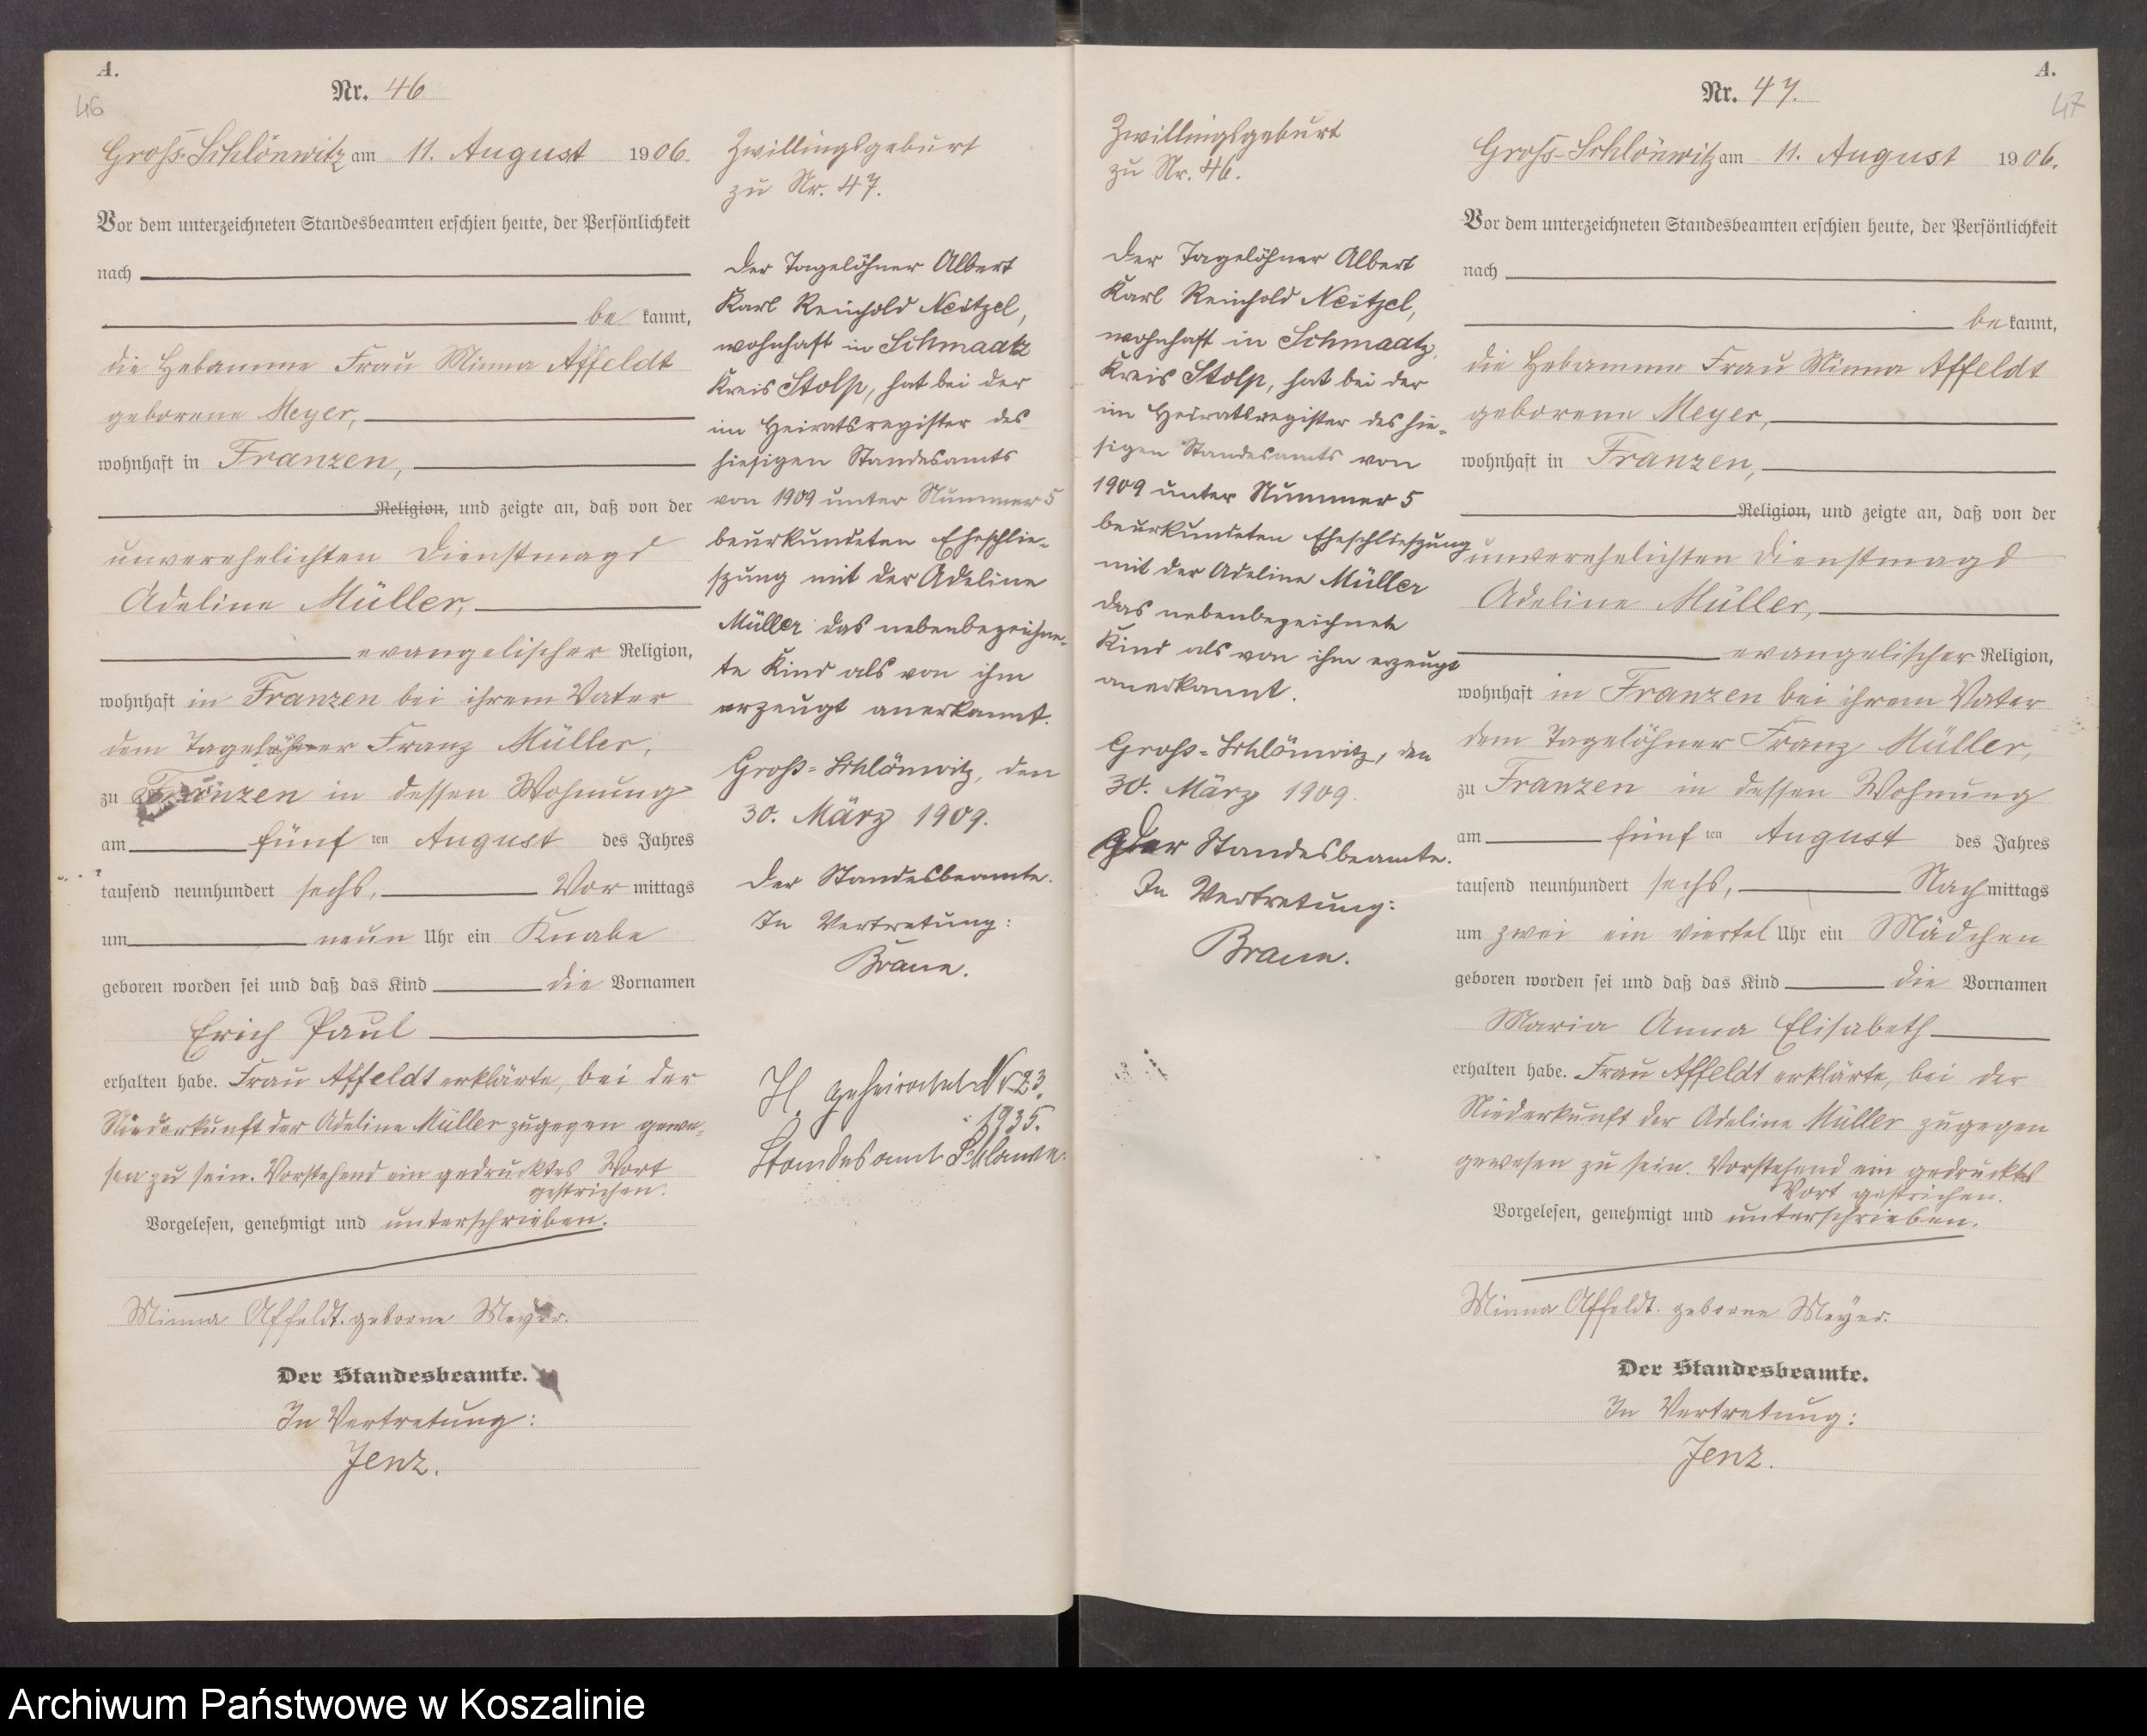 A.
46
Nr. 46
Groß-Schlönwitz am 11. August 1906.
Vor dem unterzeichneten Standesbeamten erschien heute, der Persönlichkeit
nach
be kannt,
die Hebamme Frau Minna Affeldt
geborene Meyer,
wohnhaft in Franzen,
Religion, und zeigte an, daß von der
unverehelichten Dienstmagd
Adeline Müller,
evangelischer Religion,
wohnhaft in Franzen bei ihrem Vater
dem Tagelöhner Franz Müller,
zu Franzen in dessen Wohnung
am fünf ten August des Jahres
tausend neunhundert sechs, Vor mittags
um neun Uhr ein Knabe
geboren worden sei und daß das Kind die Vornamen
Erich Paul
erhalten habe. Frau Affeldt erklärte, bei der
Niederkunft der Adeline Müller zugegen gewe-
sen zu sein. Vorstehend ein gedrucktes Wort
gestrichen.
Vorgelesen, genehmigt und unterschrieben.
Minna Affeldt. geborne Meyer.
Der Standesbeamte.
In Vertretung:
Jenz.
Zwillingsgeburt
zu Nr. 47.
Der Tagelöhner Albert
Karl Reinhold Neitzel,
wohnhaft in Schmaatz
Kreis Stolp, hat bei der
im Heiratsregister des
hiesigen Standesamts
von 1909 unter Nummer 5
beurkundeten Eheschlie-
szung mit der Adeline
Müller das nebenbezeichne-
te Kind als von ihm
erzeugt anerkannt.
Groß-Schlönwitz, den
30. März 1909.
Der Standesbeamte.
In Vertretung:
Braun.
H. geheiratet Nr 23.
1935.
Standesamt Schlawe.
Zwillingsgeburt
zu Nr. 46.
Der Tagelöhner Albert
Karl Reinhold Neitzel,
wohnhaft in Schmaatz,
Kreis Stolp, hat bei der
im Heiratsregister des hie-
sigen Standesamts von
1909 unter Nummer 5
beurkundeten Eheschlieszung
mit der Adeline Müller
das nebenbezeichnete
Kind als von ihm erzeugt
anerkannt.
Groß-Schlönwitz, den
30. März 1909.
Der Standesbeamte.
In Vertretung:
Braun.
A.
47
Nr. 47.
Groß-Schlönwitz am 11. August 1906.
Vor dem unterzeichneten Standesbeamten erschien heute, der Persönlichkeit
nach
be kannt,
die Hebamme Frau Minna Affeldt
geborene Meyer,
wohnhaft in Franzen,
Religion, und zeigte an, daß von der
unverehelichten Dienstmagd
Adeline Müller,
evangelischer Religion,
wohnhaft in Franzen bei ihrem Vater
dem Tagelöhner Franz Müller,
zu Franzen in dessen Wohnung
am fünf ten August des Jahres
tausend neunhundert sechs, Nach mittags
um zwei ein viertel Uhr ein Mädchen
geboren worden sei und daß das Kind die Vornamen
Maria Anna Elisabeth
erhalten habe. Frau Affeldt erklärte, bei der
Niederkunft der Adeline Müller zugegen
gewesen zu sein. Vorstehend ein gedrucktes
Wort gestrichen.
Vorgelesen, genehmigt und unterschrieben.
Minna Affeldt. geborne Meyer.
Der Standesbeamte.
In Vertretung:
Jenz.
Archiwum Państwowe w Koszalinie